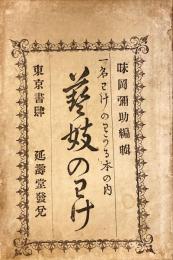 味岡彌助編輯
一名わけのわかる本の内
藝妓のわけ
東京書肆　延壽堂發兌